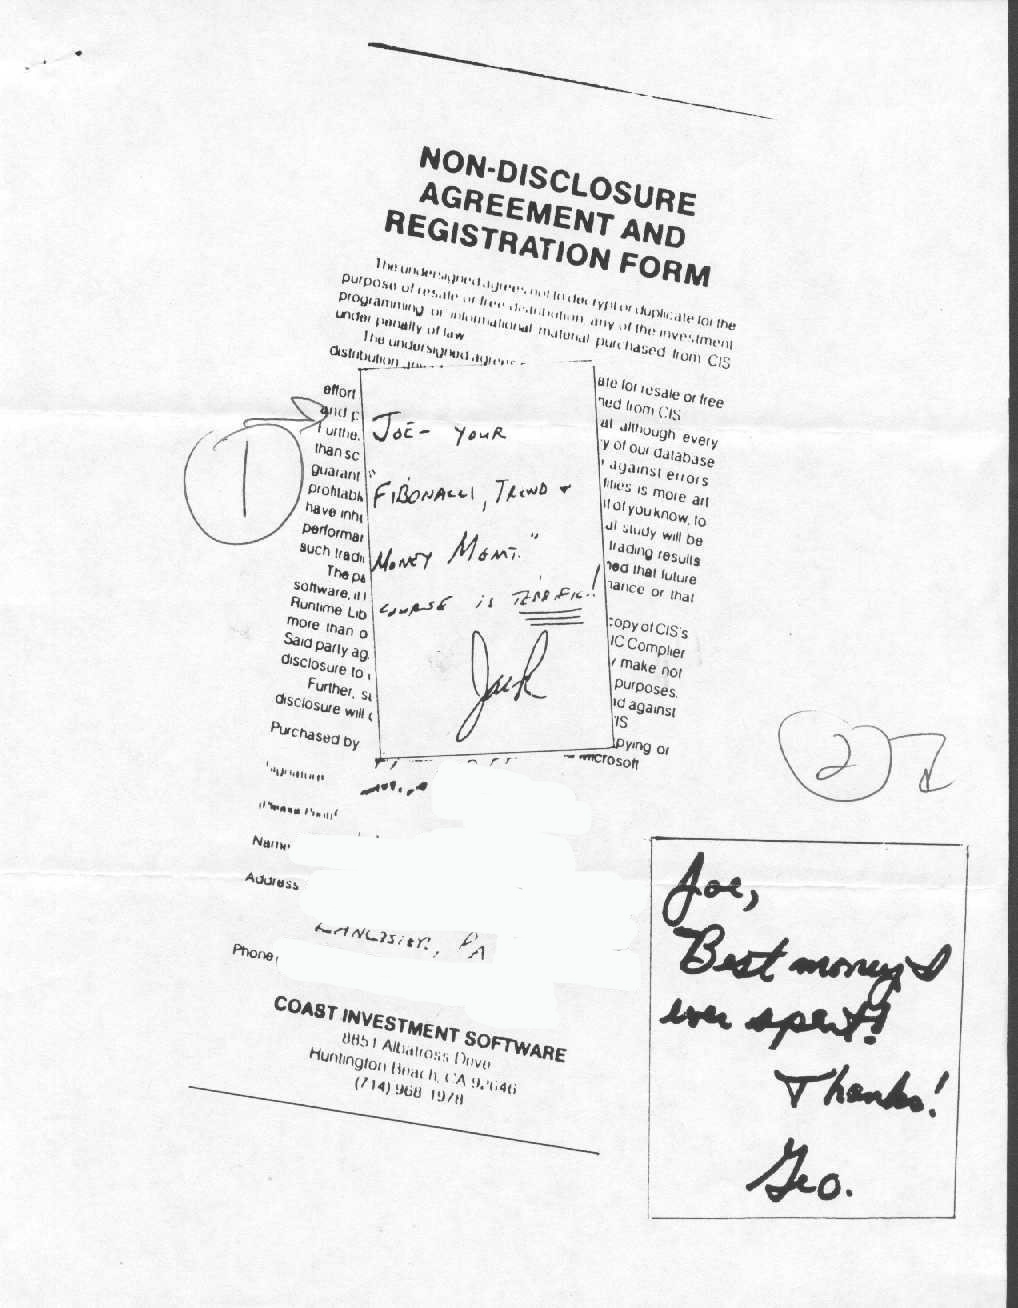 NON-DISCLOSURE
AGREEMENT AND
REGISTRATION FORM
The undersigned agrees not to decrypt or duplicate for the
purpose of resale or free distribution, any of the investment
programming or informational material purchased from CIS
under penalty of law
The undersigned agrees
distribution
ate for resale or free
effort
ned from CIS
and p
at although every
Furthe
y of our database
than sc
against errors
guarant
ities is more art
profitabl
if of you know, to
have inh
ul study will be
performan
trading results
such tradi
ned that future
The pa
nance or that
software, it
Runtime Lib
copy of CIS's
more than o
IC Complier
Said party ag
make not
disclosure to
purposes.
Further, s
id against
disclosure will
IS
Purchased by
pying or
Microsoft
Signature
(Please Print)
Name
Address
LANCASTER, PA
Phone
COAST INVESTMENT SOFTWARE
8851 Albatross Drive
Huntington Beach, CA 92646
(714) 968-1978
1
JOE- YOUR
"FIBONACCI, TREND +
MONEY MGMT."
COURSE is TERRIFIC!
Jack
2
Joe,
Best money I
ever spent!
Thanks!
Geo.